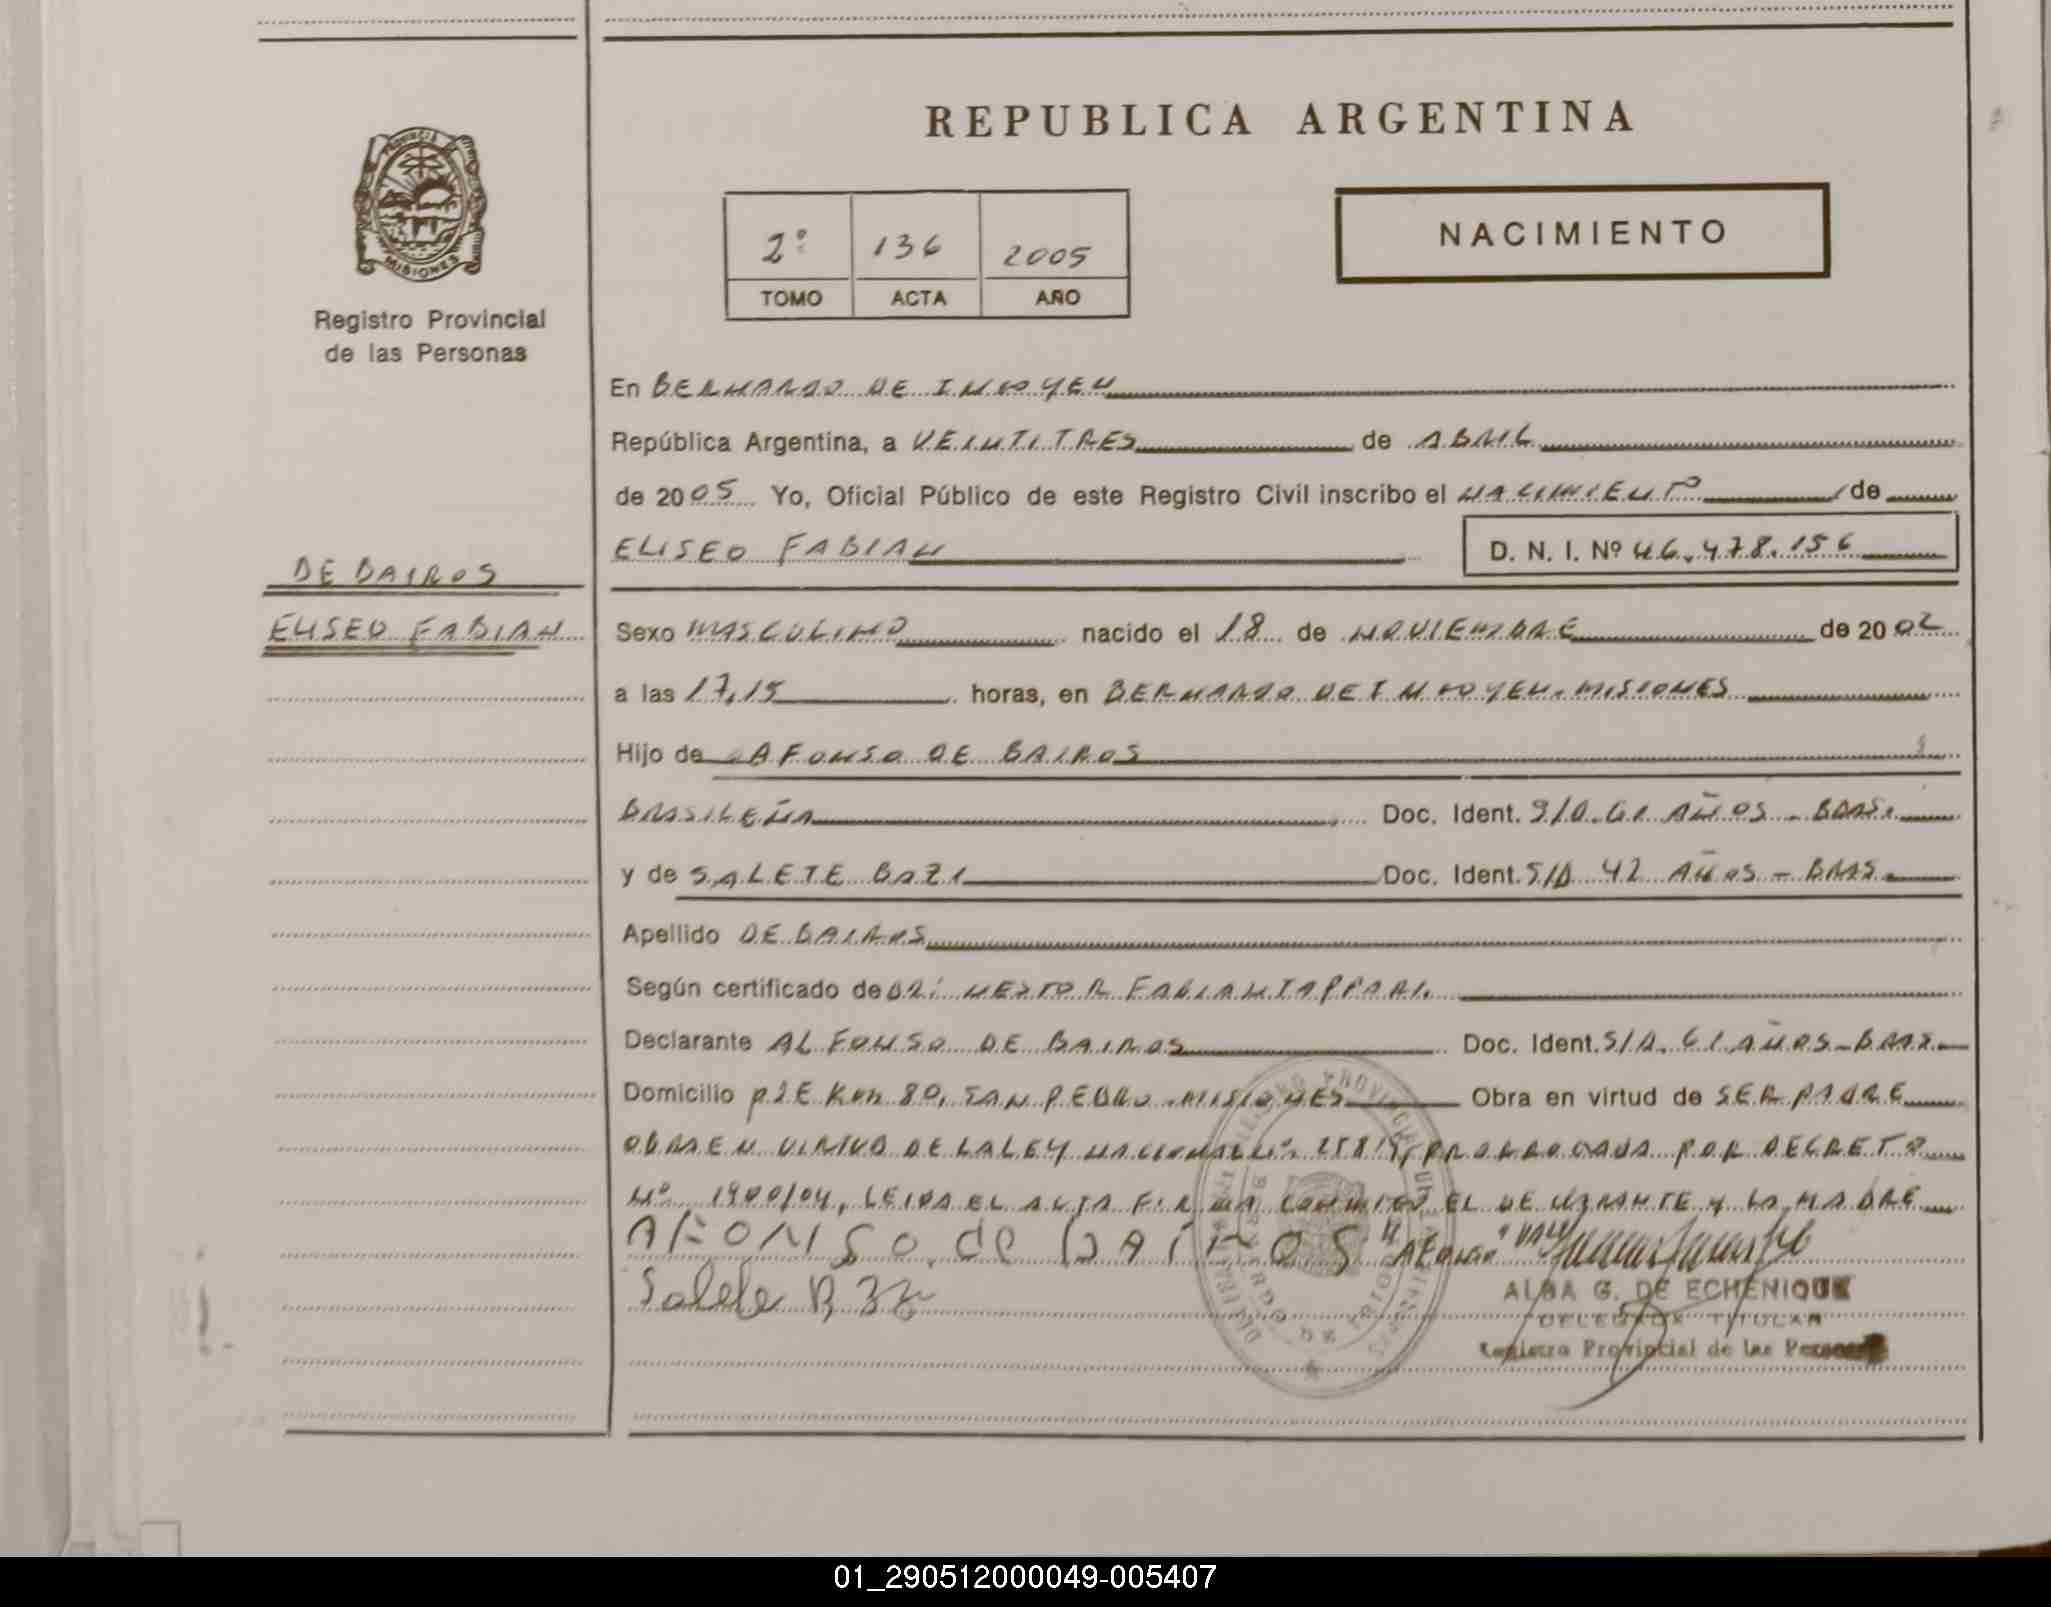 REPUBLICA ARGENTINA
PROVINCIA DE
MISIONES
Registro Provincial
de las Personas
2º 136 2005
TOMO ACTA AÑO
NACIMIENTO
En BERNARDO DE IRIGOYEN
República Argentina, a VEINTITRES de ABRIL
de 2005 Yo, Oficial Público de este Registro Civil inscribo el NACIMIENTO de
ELISEO FABIAN D. N. I. Nº 46.478.156
DE BAIROS
ELISEO FABIAN
Sexo MASCULINO nacido el 18 de NOVIEMBRE de 2002
a las 17,15 horas, en BERNARDO DE IRIGOYEN. MISIONES
Hijo de AFONSO DE BAIROS
BRASILEÑA Doc. Ident. S/D. 61 AÑOS - BRAS.
y de SALETE Doc. Ident. S/D 42 AÑOS - BRAS.
Apellido DE BAIROS
Según certificado de DR: NESTOR FABIAN TAPPARI.
Declarante ALFONSO DE BAIROS Doc. Ident. S/D. 61 AÑOS - BRAS.
Domicilio Km 80, SAN PEDRO. MISIONES Obra en virtud de SER PADRE
OBRA EN VIRTUD DE LA LEY NACIONAL Nº 25819, PRORROGADA POR DECRETO
Nº 1900/04, LEIDA EL ACTA FIRMA CONMIGO EL DECLARANTE Y LA MADRE
AFONSO de BAIROS "AFONSO" VALE
Salete
ALBA G. DE ECHENIQUE
DELEGADA TITULAR
Registro Provincial de las Personas
01_290512000049-005407